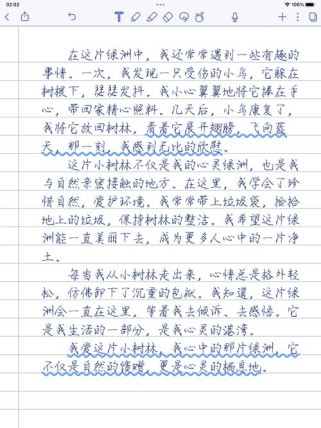 02:02
100%
在这片绿洲中，我还常常遇到一些有趣的
事情。一次，我发现一只受伤的小鸟，它躲在
树根下，瑟瑟发抖。我小心翼翼地将它捧在手
心，带回家精心照料。几天后，小鸟康复了，
我将它放回树林，看着它展开翅膀，飞向蓝
天，那一刻，我感到无比的欣慰。
这片小树林不仅是我的心灵绿洲，也是我
与自然亲密接触的地方。在这里，我学会了珍
惜自然，爱护环境。我常常带上垃圾袋，捡拾
地上的垃圾，保持树林的整洁。我希望这片绿
洲能一直美丽下去，成为更多人心中的一片净
土。
每当我从小树林走出来，心情总是格外轻
松，仿佛卸下了沉重的包袱。我知道，这片绿
洲会一直在这里，等着我去倾诉、去感悟。它
是我生活的一部分，是我心灵的港湾。
我爱这片小树林，我心中的那片绿洲，它
不仅是自然的馈赠，更是心灵的栖息地。